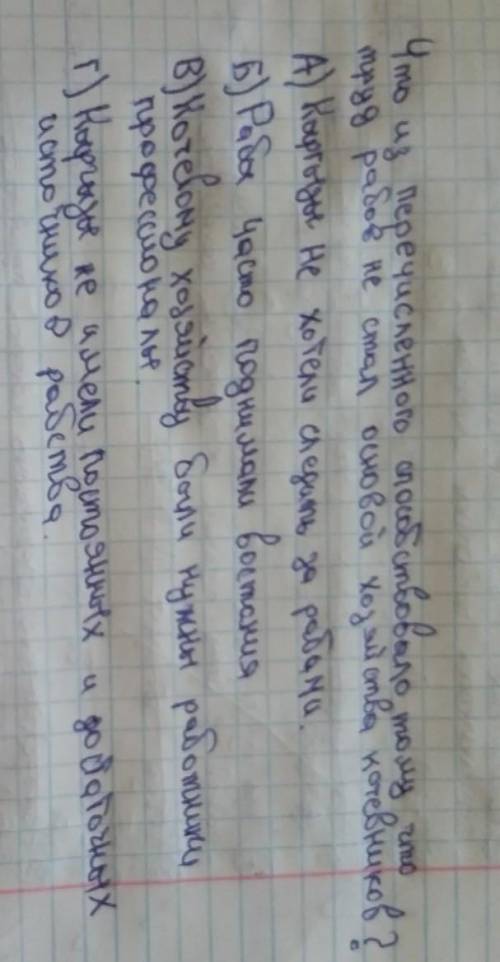 Что из перечисленного способствовало тому что
труд рабов не стал основой хозяйства кочевников?
А) Кыргызы не хотели следить за рабами.
Б) Рабы часто поднимали востания
В) Кочевому хозяйству были нужны работники
профессионалы.
Г) Кыргызы не имели постоянных и добаточных
источников рабства.